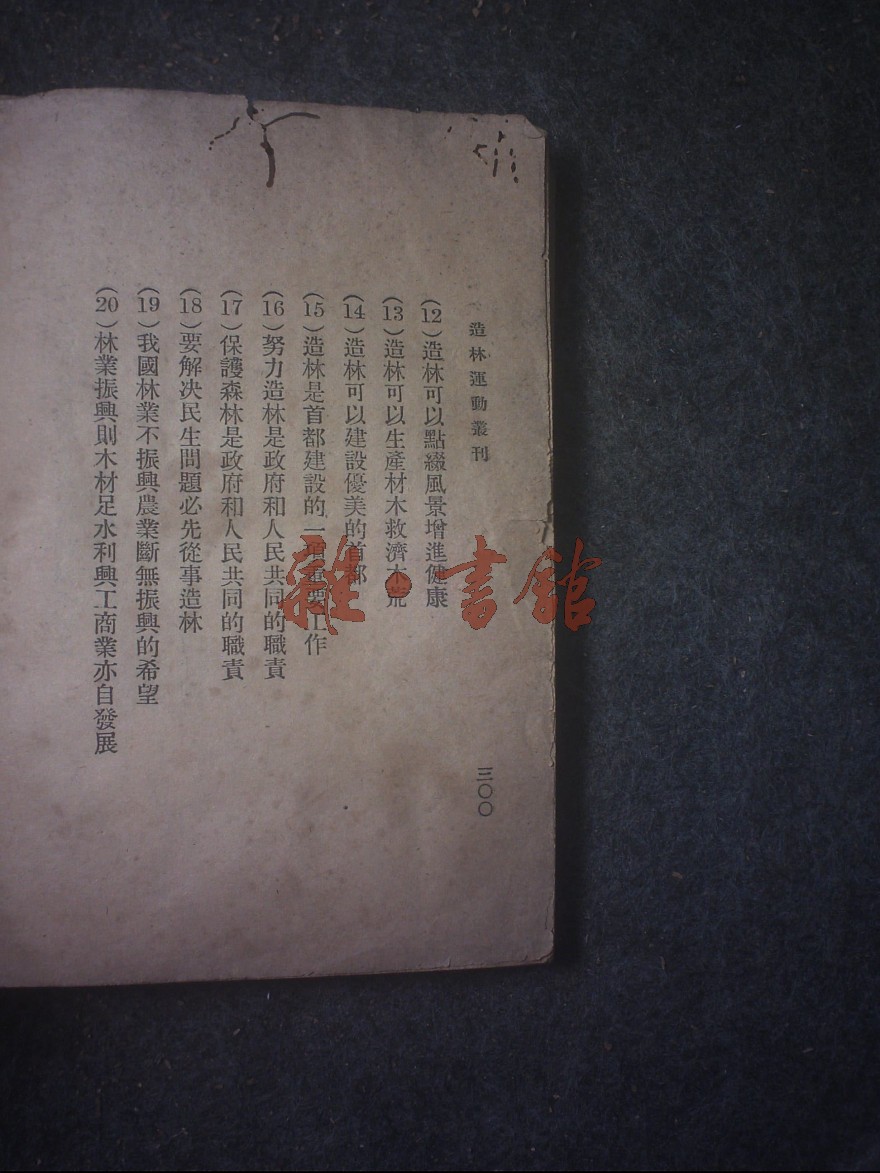 造林運動叢刊
(12)造林可以點綴風景增進健康
(13)造林可以生產材木救濟木荒
(14)造林可以建設優美的首都
(15)造林是首都建設的一項重要工作
(16)努力造林是政府和人民共同的職責
(17)保護森林是政府和人民共同的職責
(18)要解決民生問題必先從事造林
(19)我國林業不振興農業斷無振興的希望
(20)林業振興則木材足水利興工商業亦自發展
三〇〇
雜·書館